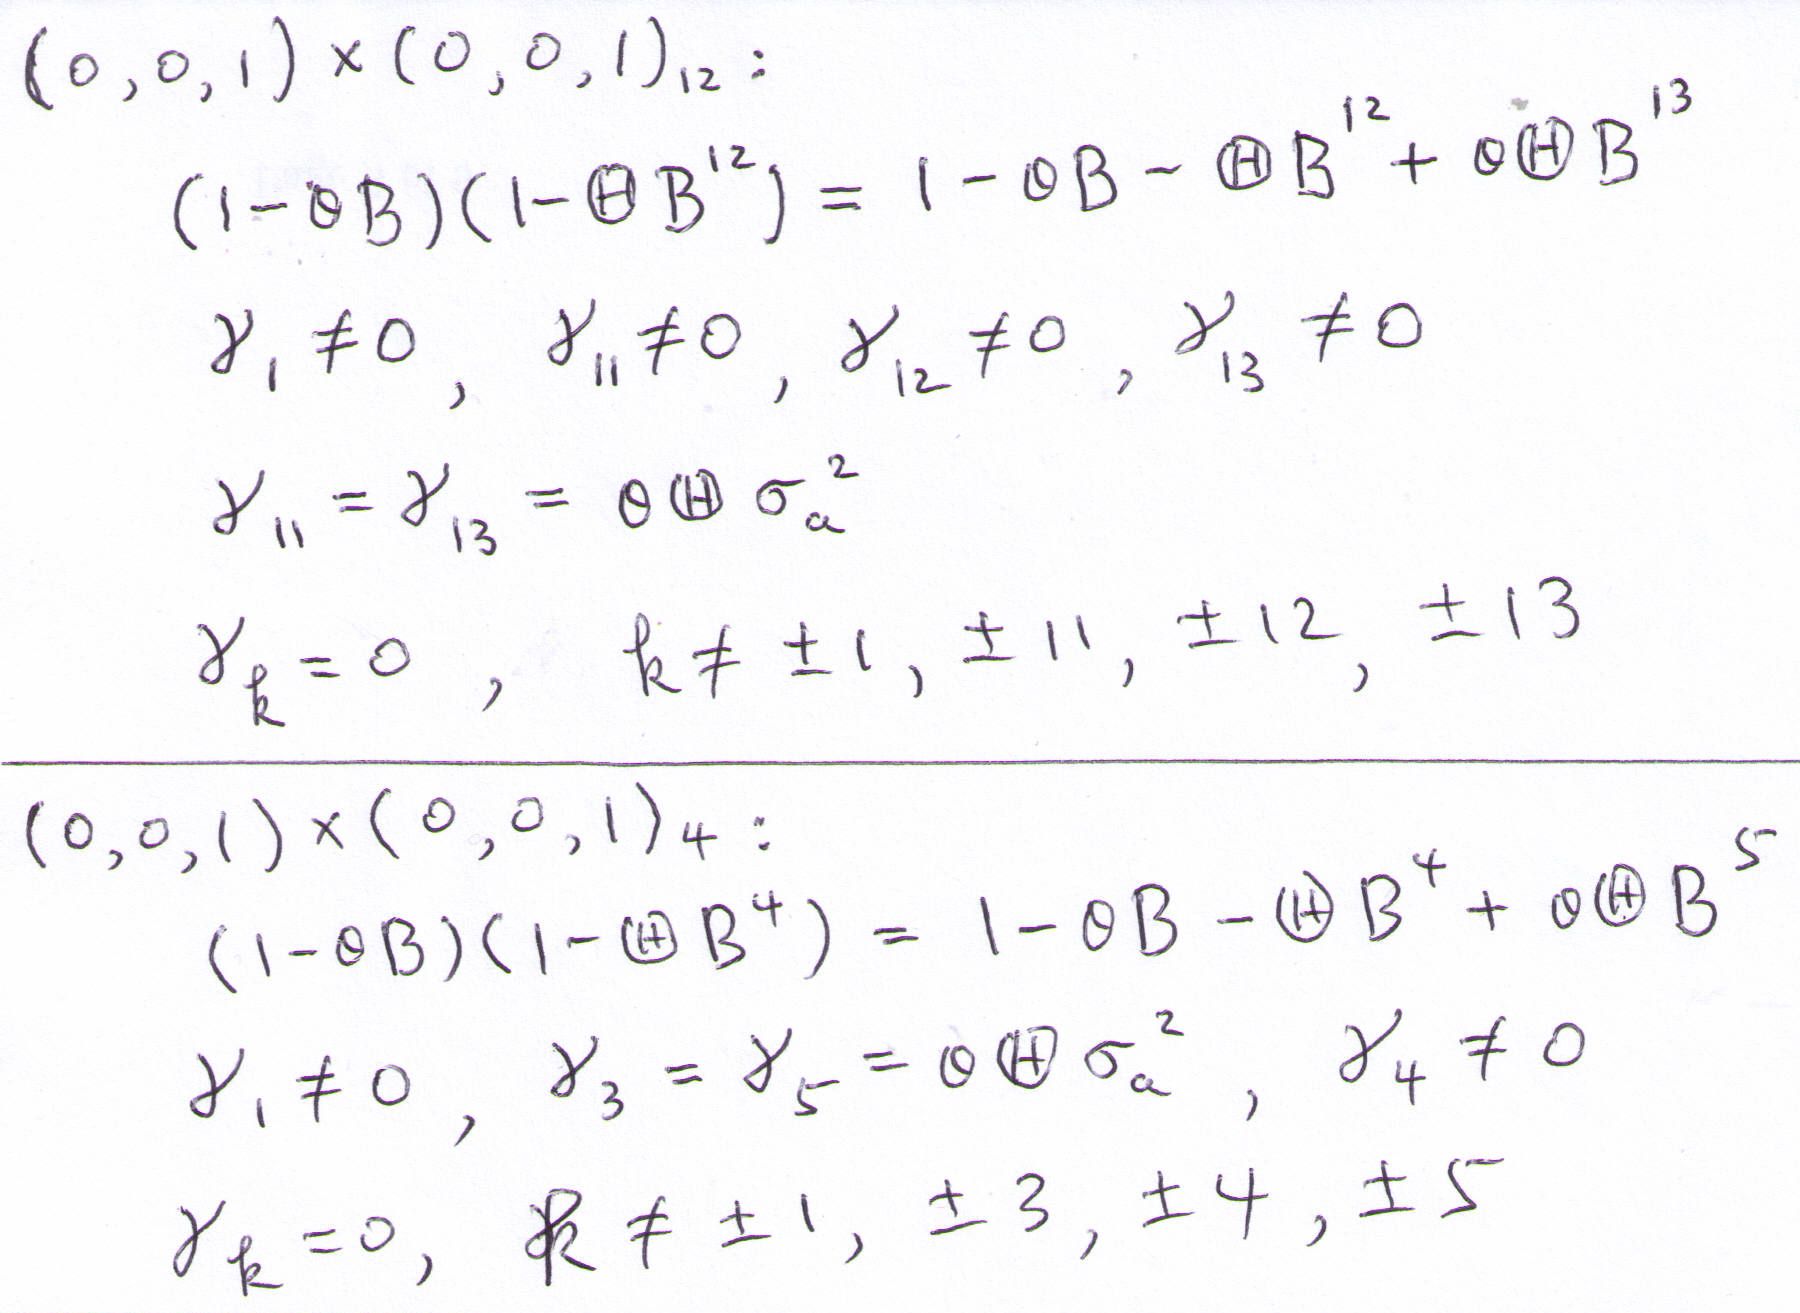 (0,0,1) × (0,0,1)₁₂ :
(1-θB)(1-ΘB¹²) = 1-θB-ΘB¹²+θΘB¹³
γ₁ ≠ 0, γ₁₁ ≠ 0, γ₁₂ ≠ 0, γ₁₃ ≠ 0
γ₁₁ = γ₁₃ = θΘσₐ²
γₖ = 0, k ≠ ±1, ±11, ±12, ±13
(0,0,1) × (0,0,1)₄ :
(1-θB)(1-ΘB⁴) = 1-θB-ΘB⁴+θΘB⁵
γ₁ ≠ 0, γ₃ = γ₅ = θΘσₐ², γ₄ ≠ 0
γₖ = 0, k ≠ ±1, ±3, ±4, ±5